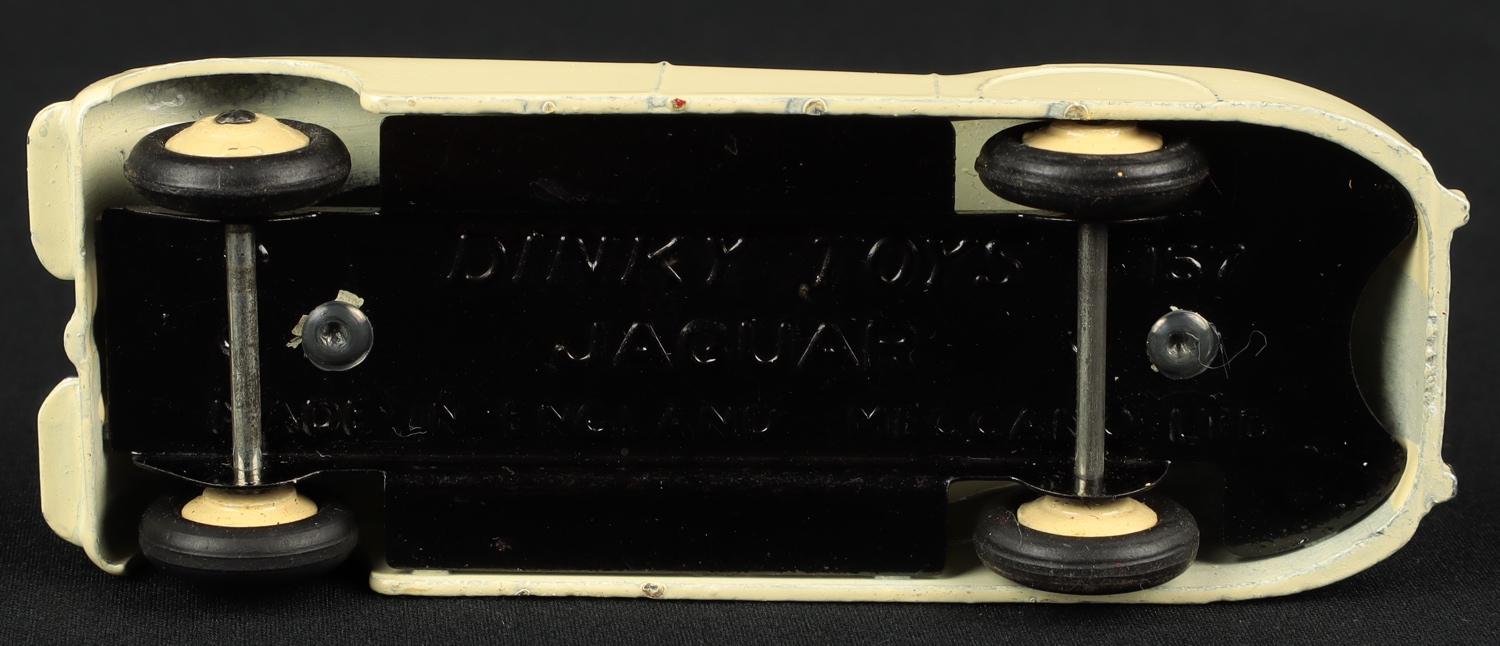 DINKY TOYS 157
JAGUAR
MADE IN ENGLAND MECCANO LTD